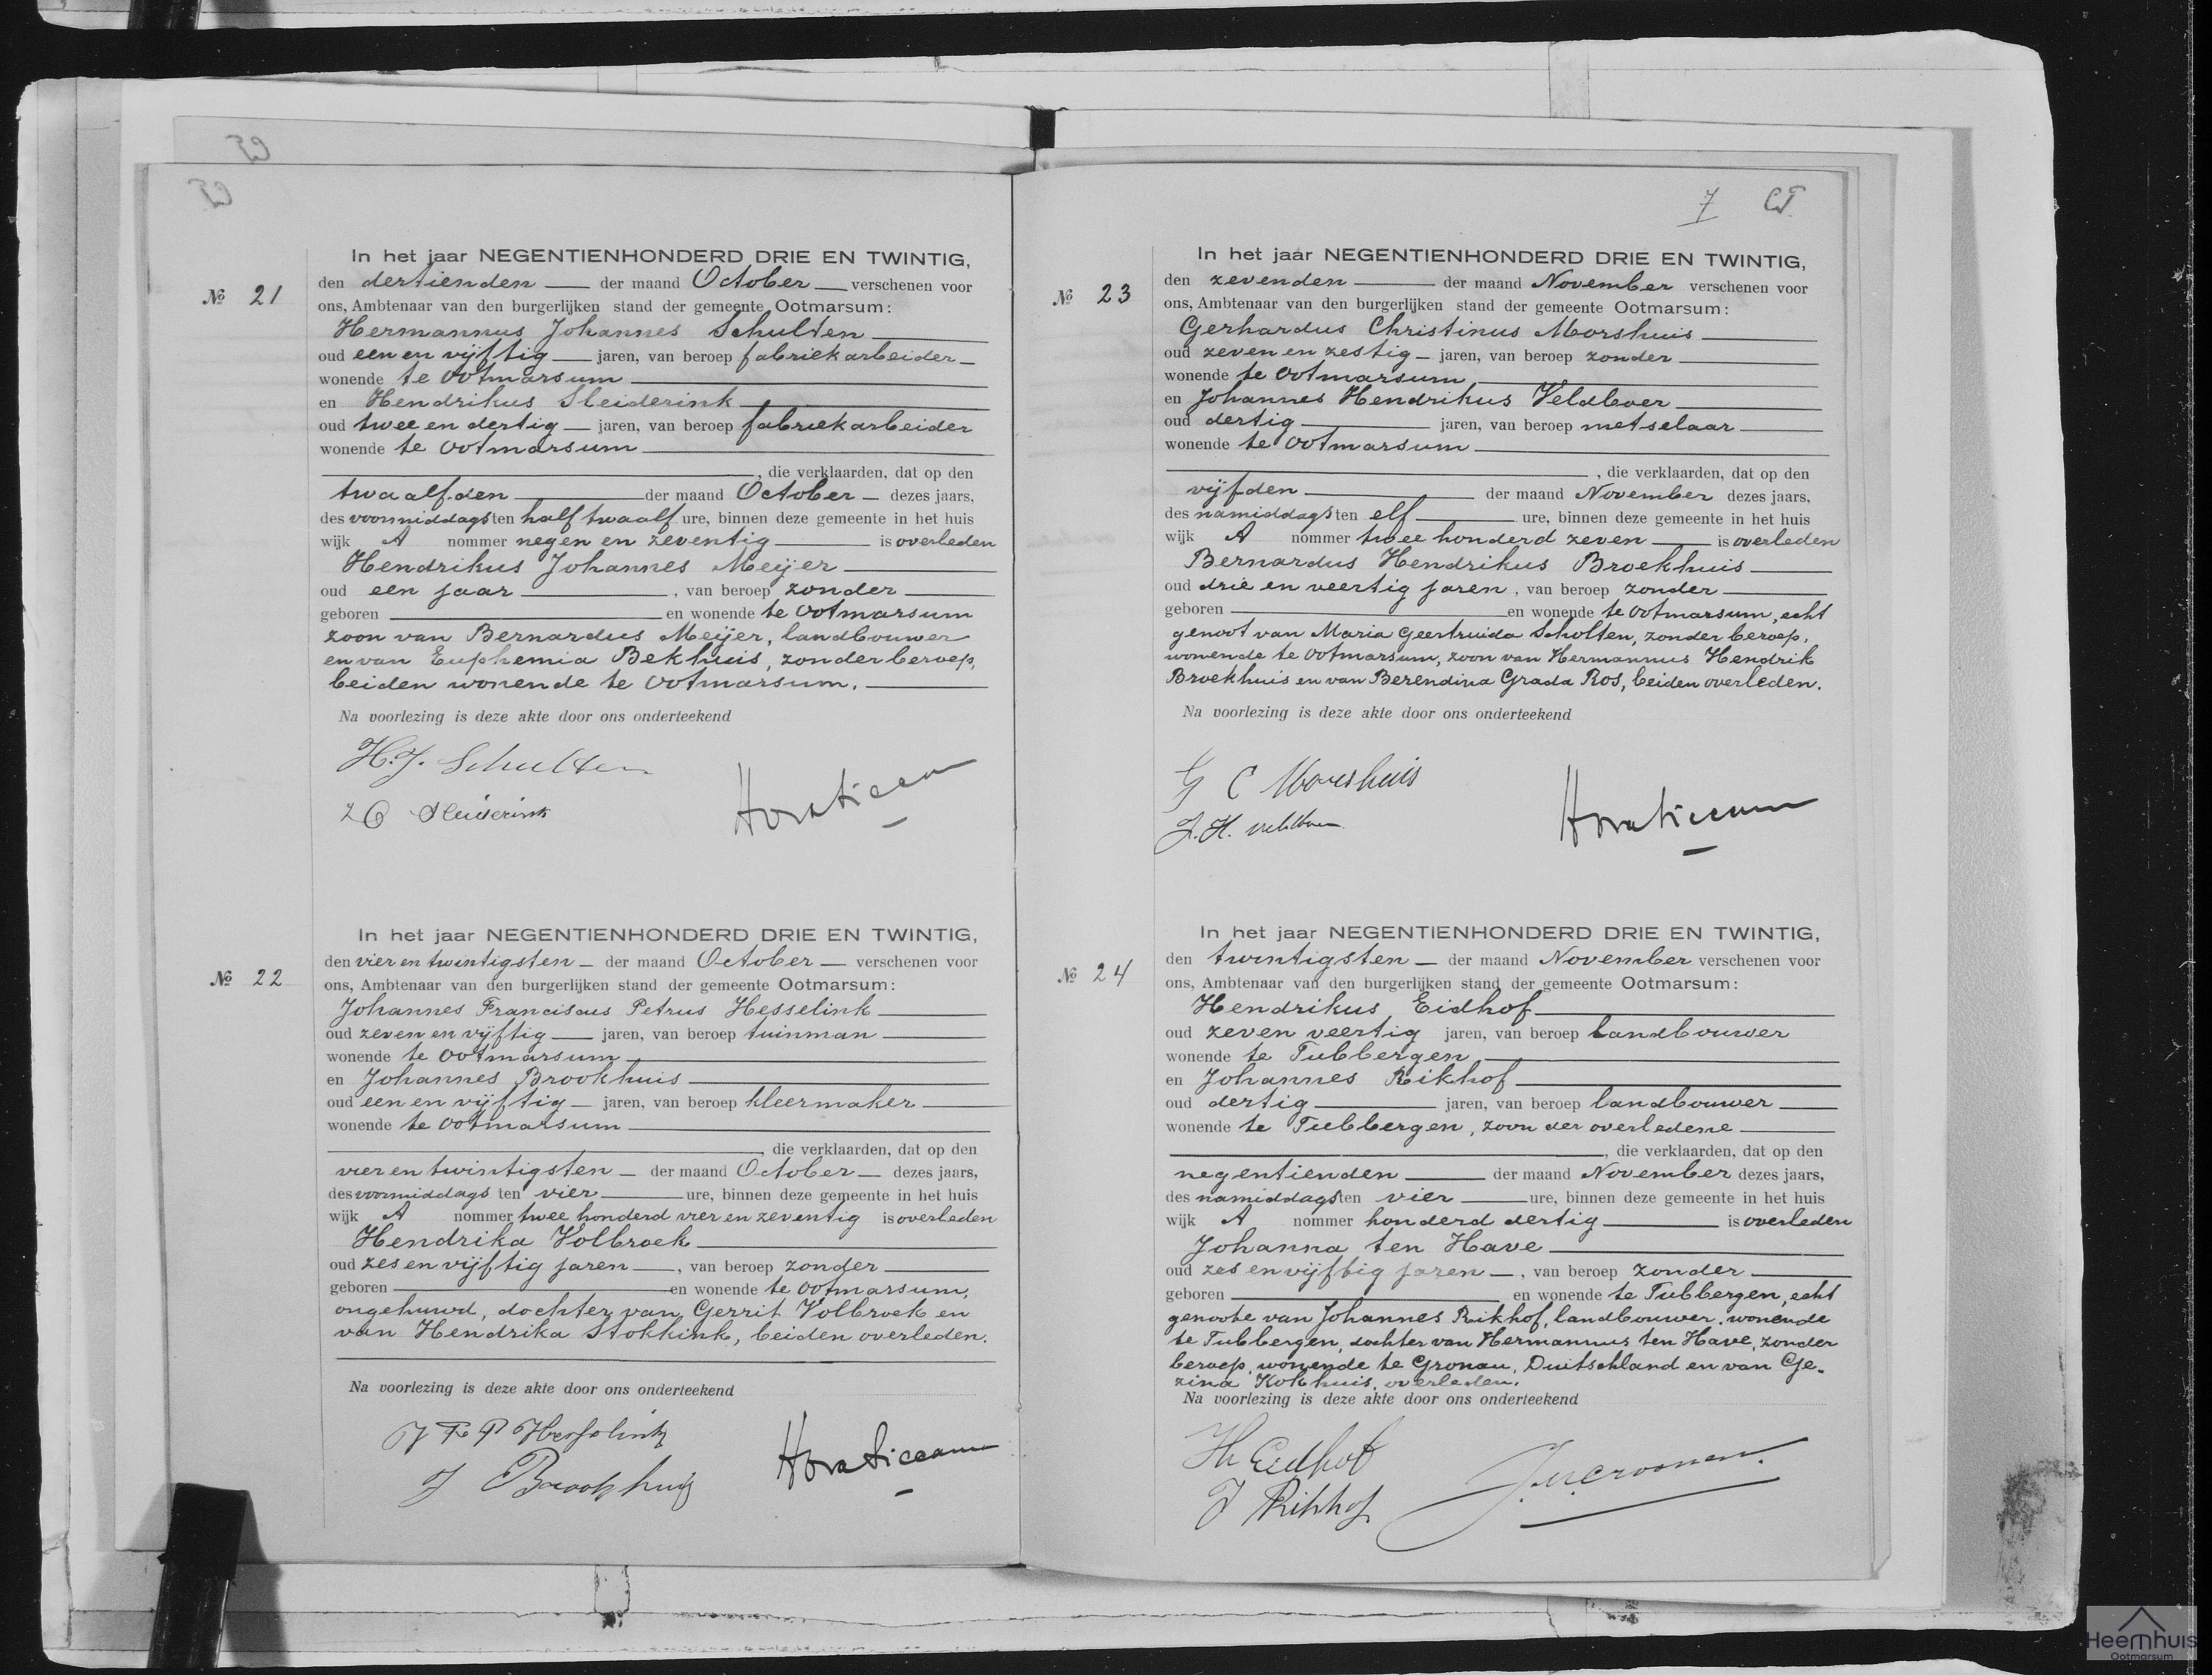 In het jaar NEGENTIENHONDERD DRIE EN TWINTIG,
№ 21
den dertienden der maand October verschenen voor
ons, Ambtenaar van den burgerlijken stand der gemeente Ootmarsum:
Hermannus Johannes Schulten
oud een en vijftig jaren, van beroep fabriekarbeider
wonende te Ootmarsum
en Hendrikus Sleiderink
oud twee en dertig jaren, van beroep fabriekarbeider
wonende te Ootmarsum
, die verklaarden, dat op den
twaalfden der maand October dezes jaars,
des voormiddags ten half twaalf ure, binnen deze gemeente in het huis
wijk A nommer negen en zeventig is overleden
Hendrikus Johannes Meijer
oud een jaar, van beroep zonder
geboren en wonende te Ootmarsum
zoon van Bernardus Meijer, landbouwer
en van Euphemia Bekhuis, zonder beroep,
beiden wonende te Ootmarsum.
Na voorlezing is deze akte door ons onderteekend
H.J. Schulten
Sleiderink
In het jaar NEGENTIENHONDERD DRIE EN TWINTIG,
№ 22
den vier en twintigsten der maand October verschenen voor
ons, Ambtenaar van den burgerlijken stand der gemeente Ootmarsum:
Johannes Franciscus Petrus Hesselink
oud zeven en vijftig jaren, van beroep tuinman
wonende te Ootmarsum
en Johannes Brookhuis
oud een en vijftig jaren, van beroep kleermaker
wonende te Ootmarsum
, die verklaarden, dat op den
vier en twintigsten der maand October dezes jaars,
des voormiddags ten vier ure, binnen deze gemeente in het huis
wijk A nommer twee honderd vier en zeventig is overleden
Hendrika Volbroek
oud zes en vijftig jaren, van beroep zonder
geboren en wonende te Ootmarsum,
ongehuwd, dochter van Gerrit Volbroek en
van Hendrika Stokkink, beiden overleden.
Na voorlezing is deze akte door ons onderteekend
J F P Hesselink
J Brookhuis
7 CT
In het jaar NEGENTIENHONDERD DRIE EN TWINTIG,
№ 23
den zevenden der maand November verschenen voor
ons, Ambtenaar van den burgerlijken stand der gemeente Ootmarsum:
Gerhardus Christinus Morshuis
oud zeven en zestig jaren, van beroep zonder
wonende te Ootmarsum
en Johannes Hendrikus Veldboer
oud dertig jaren, van beroep metselaar
wonende te Ootmarsum
, die verklaarden, dat op den
vijfden der maand November dezes jaars,
des namiddags ten elf ure, binnen deze gemeente in het huis
wijk A nommer twee honderd zeven is overleden
Bernardus Hendrikus Broekhuis
oud drie en veertig jaren, van beroep zonder
geboren en wonende te Ootmarsum, echt
genoot van Maria Geertruida Scholten, zonder beroep,
wonende te Ootmarsum, zoon van Hermannus Hendrik
Broekhuis en van Berendina Grada Ros, beiden overleden.
Na voorlezing is deze akte door ons onderteekend
G C Morshuis
J. H. Veldboer
In het jaar NEGENTIENHONDERD DRIE EN TWINTIG,
№ 24
den twintigsten der maand November verschenen voor
ons, Ambtenaar van den burgerlijken stand der gemeente Ootmarsum:
Hendrikus Eidhof
oud zeven veertig jaren, van beroep landbouwer
wonende te Tubbergen
en Johannes Rikhof
oud dertig jaren, van beroep landbouwer
wonende te Tubbergen, zoon der overledene
, die verklaarden, dat op den
negentienden der maand November dezes jaars,
des namiddags ten vier ure, binnen deze gemeente in het huis
wijk A nommer honderd dertig is overleden
Johanna ten Have
oud zes en vijftig jaren, van beroep zonder
geboren en wonende te Tubbergen, echt
genoote van Johannes Rikhof, landbouwer, wonende
te Tubbergen, dochter van Hermannus ten Have, zonder
beroep, wonende te Gronau, Duitschland en van Ge-
zina Kokhuis, overleden.
Na voorlezing is deze akte door ons onderteekend
H Eidhof
J Rikhof
Heemhuis
Ootmarsum